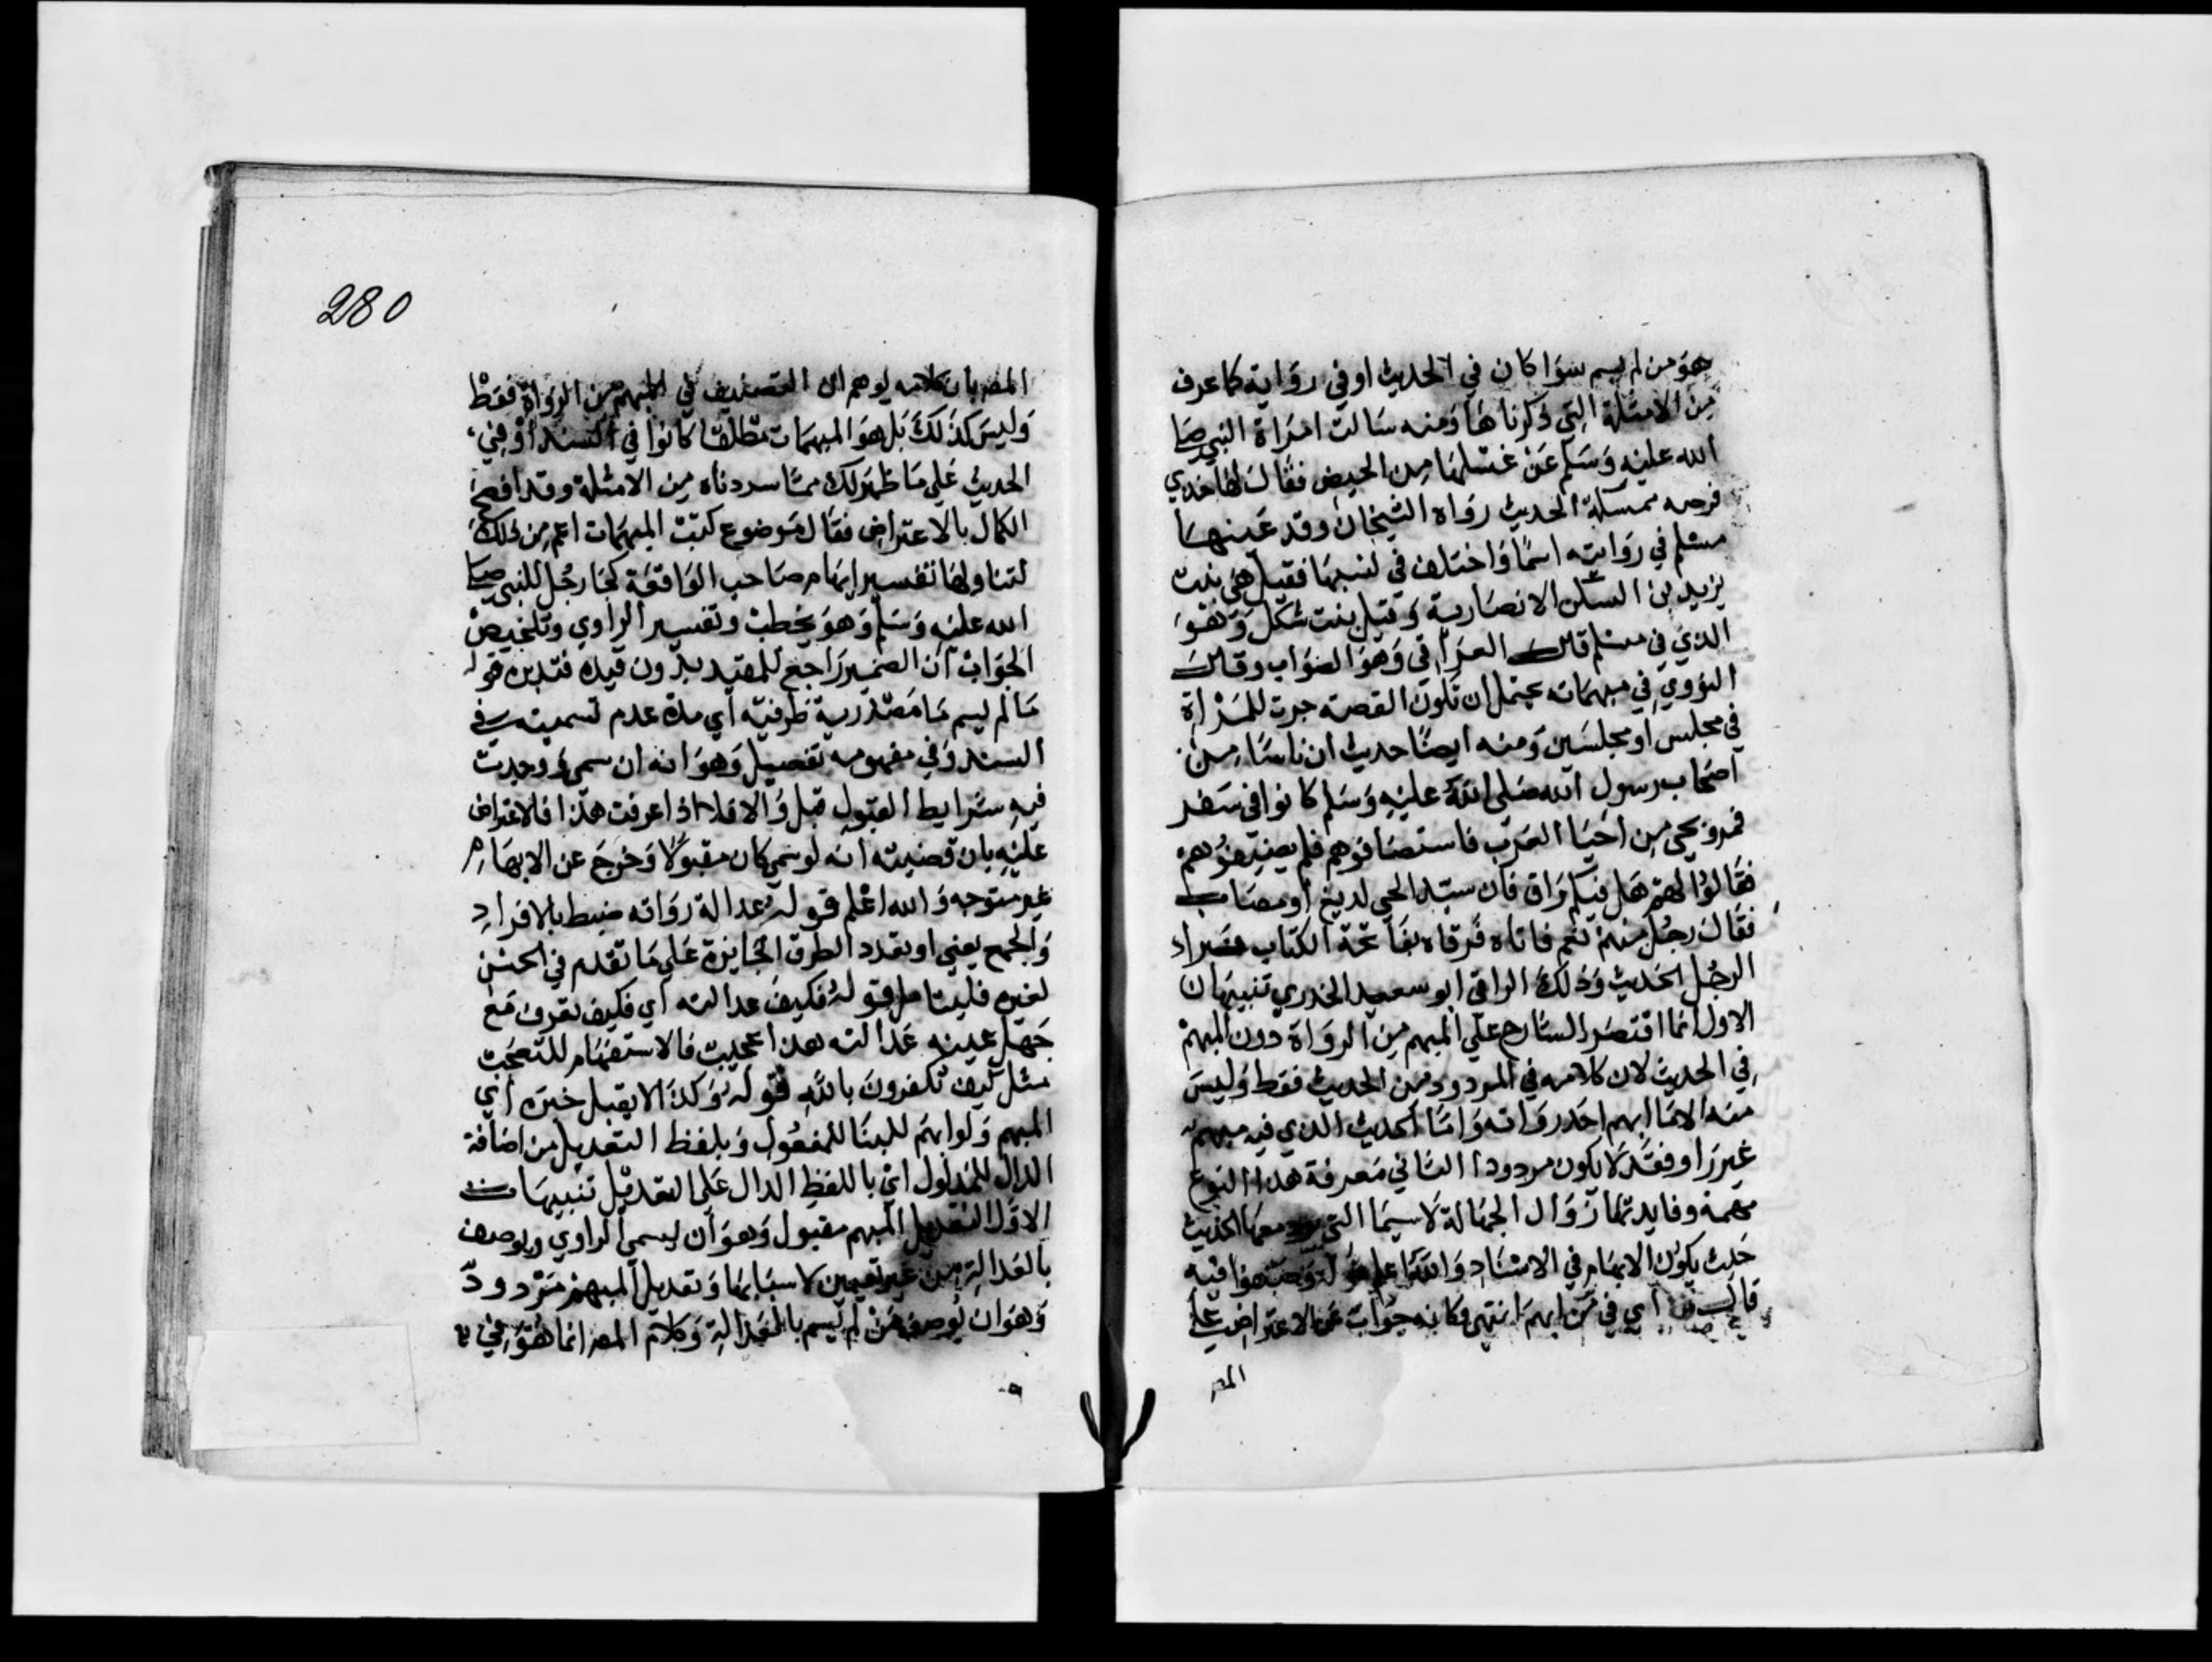 هو من لم يسم سوا كان في الحديث او في رواية كما عرف
من الامثلة التي ذكرناها ومنه سالت امراة النبي صلى
الله عليه وسلم عن غسلها من الحيض فقال لها خذي
فرصه ممسكة الحديث رواه الشيخان وقد عينها
مسلم في روايته اسما واختلف في نسبها فقيل هي بنت
يزيد بن السكن الانصارية وقيل بنت شكل وهو
الذي في مسلم قال العراقي وهو الصواب وقال
النووي في مبهماته يحتمل ان تكون القصة جرت للمراة
في مجلس او مجلسين ومنه ايضا حديث ان ناسا من
اصحاب رسول الله صلى الله عليه وسلم كانوا في سفر
فمروا بحي من احيا العرب فاستضافوهم فلم يضيفوهم
فقالوا لهم هل فيكم راق فان سيد الحي لديغ او مصاب
فقال رجل منهم نعم فاتاه فرقاه بفاتحة الكتاب فبراء
الرجل الحديث وذلك الراقي ابو سعيد الخدري تنبيهان
الاول انما اقتصر الشارح علي المبهم من الرواة دون المبهم
في الحديث لان كلامه في المردود من الحديث فقط وليس
منه الا ما ابهم احد رواته واما الحديث الذي فيه مبهم
غير راو فقد لا يكون مردودا الثاني معرفة هذا النوع
مهمة وفايدتها زوال الجهالة لاسيما التي معها الحديث
حيث يكون الابهام في الاسناد والله اعلم قوله وصنفوا فيه
قال اي في من ابهم انتهي فكانه جواب عن الاعتراض علي
المص
280
المص بان كلامه يوهم ان التصنيف في المبهم من الرواة فقط
وليس كذلك بل هو المبهمات مطلقا كانوا في السند او في
الحديث علي ما ظهر لك مما سردناه من الامثلة وقد افصح
الكمال بالاعتراض فقال موضوع كتب المبهمات اعم من ذلك
لتناولها تفسير ابهام صاحب الواقعة كجا رجل للنبي صلى
الله عليه وسلم وهو يخطب وتفسير الراوي وتلخيص
الجواب ان الضمير راجع للمقيد بدون قيده فتدبره قوله
ما لم يسم ما مصدرية ظرفية اي مدة عدم تسميته في
السند وفي مفهومه تفصيل وهو انه ان سمي ووجدت
فيه شرايط القبول قبل والا فلا اذا عرفت هذا فالاعتراض
عليه بان قضيته انه لو سمي كان مقبولا وخرج عن الابهام
غير متوجه والله اعلم قوله عدالة رواته ضبط بالافراد
والجمع يعني او بتعدد الطرق الجابرة علي ما تقدم في الحسن
لغيره فليتامل قوله فكيف عدالته اي فكيف تعرف مع
جهل عينه عدالته هذا عجيب فالاستفهام للتعجب
مثل كيف تكفرون بالله قوله وكذا لا يقبل خبره اي
المبهم ولو ابهم للبنا للمفعول وبلفظ التعديل من اضافة
الدال للمدلول اي باللفظ الدال علي التعديل تنبيهات
الاول التعديل المبهم مقبول وهو ان يسمي الراوي ويوصف
بالعدالة من غير تعيين لاسبابها وتعديل المبهم مردود
وهو ان يوصف من لم يسم بالعدالة وكلام المص انما هو في